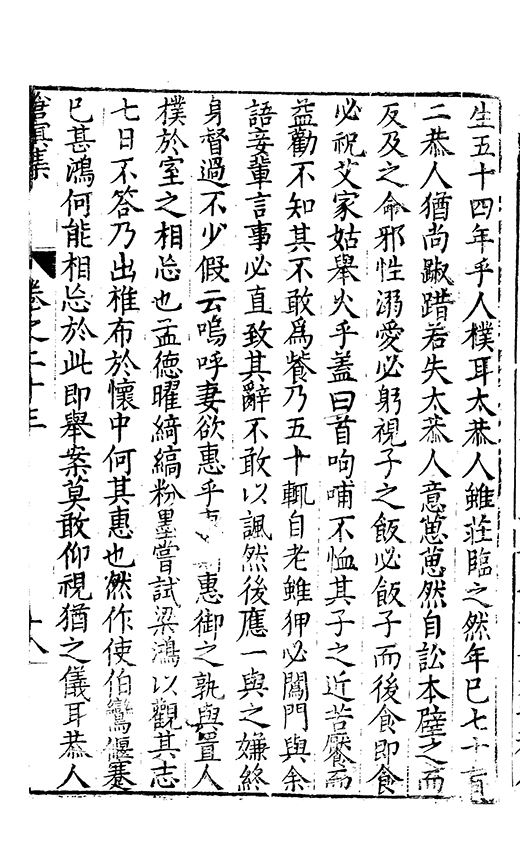 生五十四年乎人樸耳太恭人雖莊臨之然年已七十有
二恭人猶尚踧踖若失太恭人意蒽蒽然自訟本壁之而
反及之命邪性溺愛必躬視子之飯必飯子而後食即食
必祝艾家姑舉火乎蓋曰首呴哺不恤其子之近苦饜而
益勸不知其不敢為餐乃五十輒自老雖狎必闔門與余
語妾輩言事必直致其辭不敢以諷然後應一與之嫌終
身督過不少假云嗚呼妻欲惠乎 惠御之孰與置人
樸於室之相忘也孟德曜綺縞粉墨嘗試梁鴻以觀其志
七日不答乃出椎布於懷中何其惠也然作使伯鸞偃蹇
已甚鴻何能相忘於此即舉案莫敢仰視猶之儀耳恭人
滄溟集 卷之二十三 十八